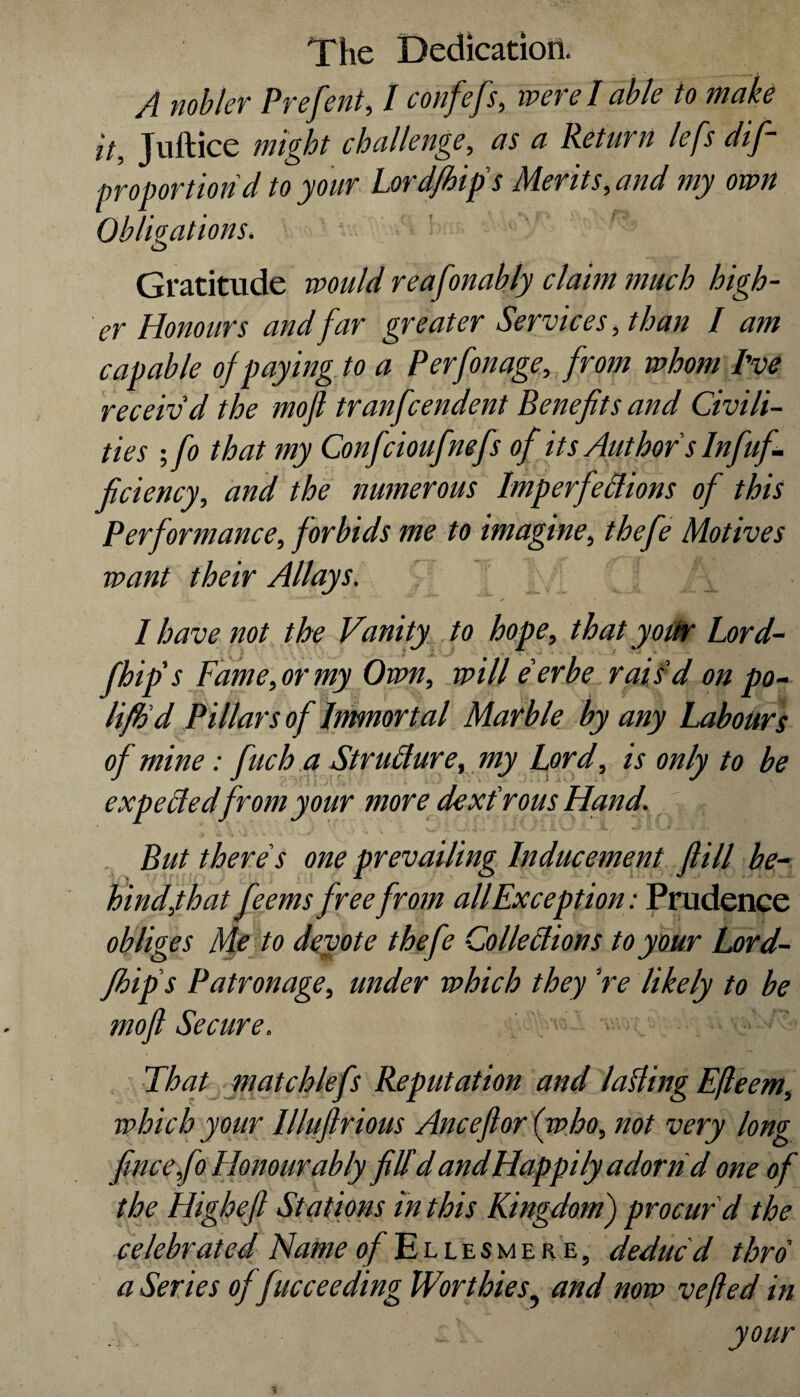 The Dedication.
A nobler Preſent, I confeſs, were I able to make
it, Juſtice might challenge, as a Return leſs diſ-
proportion'd to your Lordſhip's Merits, and my own
Obligations.
Gratitude would reaſonably claim much high-
er Honours and far greater Services, than I am
capable of paying to a Perſonage, from whom I've
receiv'd the moſt tranſcendent Benefits and Civili-
ties ; ſo that my Conſciouſneſs of its Author's Inſuf-
ficiency, and the numerous Imperfections of this
Performance, forbids me to imagine, theſe Motives
want their Allays.
I have not the Vanity to hope, that your Lord-
ſhip's Fame, or my Own, will e'er be raiſ'd on po-
liſh'd Pillars of Immortal Marble by any Labours
of mine : ſuch a Structure, my Lord, is only to be
expected from your more dext'rous Hand.
But there's one prevailing Inducement ſtill be-
hind, that ſeems free from all Exception : Prudence
obliges Me to devote theſe Collections to your Lord-
ſhip's Patronage, under which they 're likely to be
moſt Secure.
That matchleſs Reputation and laſting Eſteem,
which your Illuſtrious Anceſtor (who, not very long
ſince, ſo Honourably fill'd and Happily adorn'd one of
the Higheſt Stations in this Kingdom) procur'd the
celebrated Name of ELLESMERE, deduc'd thro'
a Series of ſucceeding Worthies, and now veſted in
your